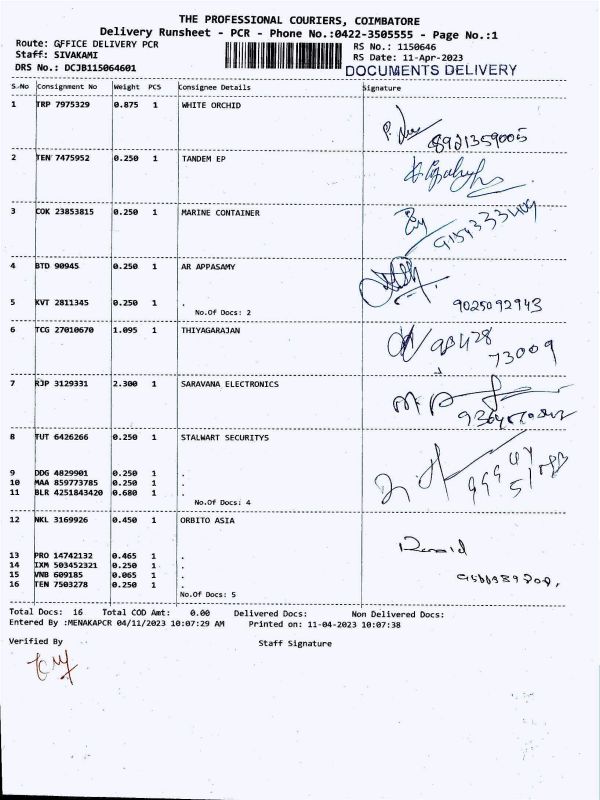 THE PROFESSIONAL COURIERS, COIMBATORE
Delivery Runsheet - PCR - Phone No.:0422-3505555 - Page No.:1
Route: OFFICE DELIVERY PCR
RS No.: 1150646
Staff: SIVAKAMI
RS Date: 11-Apr-2023
DRS No.: DCJB115064601
DOCUMENTS DELIVERY
S.No Consignment No Weight PCS Consignee Details Signature
1 TRP 7975329 0.875 1 WHITE ORCHID
8921359005
2 TEN 7475952 0.250 1 TANDEM EP
3 COK 23853815 0.250 1 MARINE CONTAINER
4 BTD 90945 0.250 1 AR APPASAMY
5 KVT 2811345 0.250 1 .
No.Of Docs: 2
9025092943
6 TCG 27010670 1.095 1 THIYAGARAJAN
73009
7 RJP 3129331 2.300 1 SARAVANA ELECTRONICS
8 TUT 6426266 0.250 1 STALWART SECURITYS
9 DDG 4829901 0.250 1 .
10 MAA 859773785 0.250 1 .
11 BLR 4251843420 0.680 1 .
No.Of Docs: 4
12 NKL 3169926 0.450 1 ORBITO ASIA
13 PRO 14742132 0.465 1 .
14 IXM 503452321 0.250 1 .
15 VNB 609185 0.065 1 .
16 TEN 7503278 0.250 1 .
No.Of Docs: 5
Total Docs: 16 Total COD Amt: 0.00 Delivered Docs: Non Delivered Docs:
Entered By :MENAKAPCR 04/11/2023 10:07:29 AM Printed on: 11-04-2023 10:07:38
Verified By Staff Signature